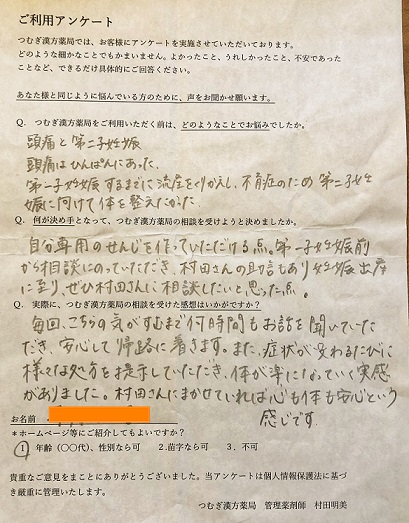 ご利用アンケート
つむぎ漢方薬局では、お客様にアンケートを実施させていただいております。
どのような細かなことでもかまいません。よかったこと、うれしかったこと、不安であった
ことなど、できるだけ具体的にご回答ください。
あなた様と同じように悩んでいる方のために、声をお聞かせ願います。
Q. つむぎ漢方薬局をご利用いただく前は、どのようなことでお悩みでしたか。
頭痛と第二子妊娠
頭痛はひんぱんにあった。
第一子妊娠するまでに流産をくりかえし、不育症のため第二子妊
娠に向けて体を整えたかった。
Q. 何が決め手となって、つむぎ漢方薬局の相談を受けようと決めましたか。
自分専用のせんじを作っていただける点。第一子妊娠前
から相談にのっていただき、村田さんの助言もあり妊娠出産
に至り、ぜひ村田さんに相談したいと思った点。
Q. 実際に、つむぎ漢方薬局の相談を受けた感想はいかがですか？
毎回、こちらの気がすむまで何時間もお話を聞いていた
だき、安心して帰路に着きます。また、症状が変わるたびに
様々な処方を提示していただき、体が楽になっていく実感
がありました。村田さんにまかせていれば心も体も安心という
感じです。
お名前
*ホームページ等にご紹介してもよいですか？
1 年齢（〇〇代）、性別なら可 2.苗字なら可 3．不可
貴重なご意見をまことにありがとうございました。当アンケートは個人情報保護法に基づ
き厳重に管理いたします。
つむぎ漢方薬局 管理薬剤師 村田明美